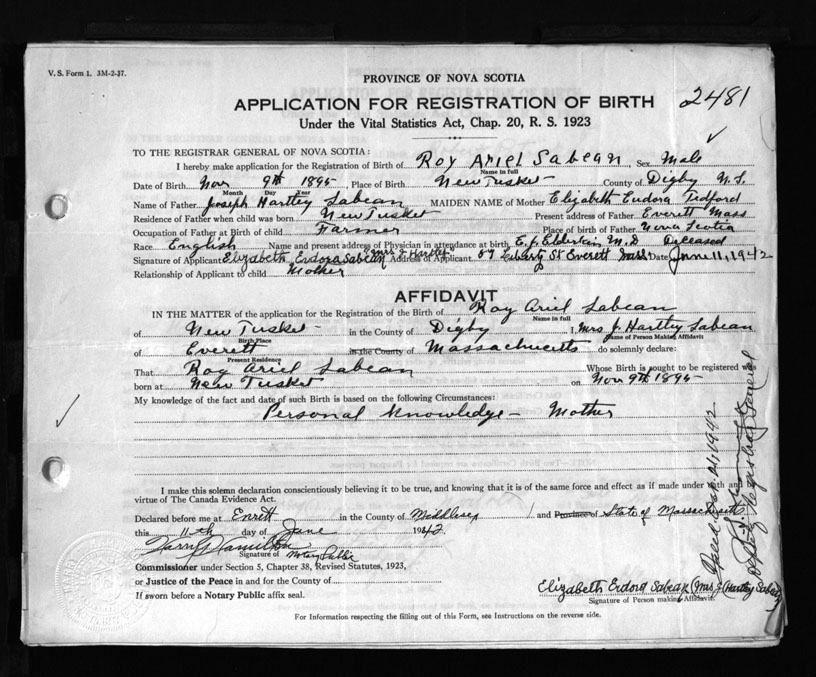 V. S. Form 1. 3M-2-37.
PROVINCE OF NOVA SCOTIA
APPLICATION FOR REGISTRATION OF BIRTH 2481
Under the Vital Statistics Act, Chap. 20, R. S. 1923
TO THE REGISTRAR GENERAL OF NOVA SCOTIA:
I hereby make application for the Registration of Birth of Roy Ariel Sabean Sex Male
Name in full
Date of Birth Nov 9th 1895 Place of Birth New Tusket County of Digby N.S.
Month Day Year
Name of Father Joseph Hartley Sabean MAIDEN NAME of Mother Elizabeth Eudora Tedford
Residence of Father when child was born New Tusket Present address of Father Everett Mass
Occupation of Father at Birth of child Farmer Place of birth of Father Nova Scotia
Race English Name and present address of Physician in attendance at birth E. J. Elderkin M.D Deceased
Signature of Applicant Elizabeth Eudora Sabean Address of Applicant 59 Liberty St Everett Mass Date June 11, 1942
Relationship of Applicant to child Mother
AFFIDAVIT
IN THE MATTER of the application for the Registration of the Birth of Roy Ariel Sabean
Name in full
of New Tusket in the County of Digby I, Mrs J. Hartley Sabean
Birth Place Name of Person Making Affidavit
of Everett in the County of Massachusetts do solemnly declare:
Present Residence
That Roy Ariel Sabean Whose Birth is sought to be registered was
born at New Tusket on Nov 9th 1895
My knowledge of the fact and date of such Birth is based on the following Circumstances:
Personal Knowledge - Mother
I make this solemn declaration conscientiously believing it to be true, and knowing that it is of the same force and effect as if made under oath and by
virtue of The Canada Evidence Act.
Declared before me at Everett in the County of Middlesex and Province of State of Massachusetts
this 11th day of June 1942
Harry Hamilton
Signature of Notary Public
Commissioner under Section 5, Chapter 38, Revised Statutes, 1923,
or Justice of the Peace in and for the County of
If sworn before a Notary Public affix seal.
Elizabeth Eudora Sabean (Mrs J Hartley Sabean)
Signature of Person making Affidavit.
For Information respecting the filling out of this Form, see Instructions on the reverse side.
1942
Registrar General